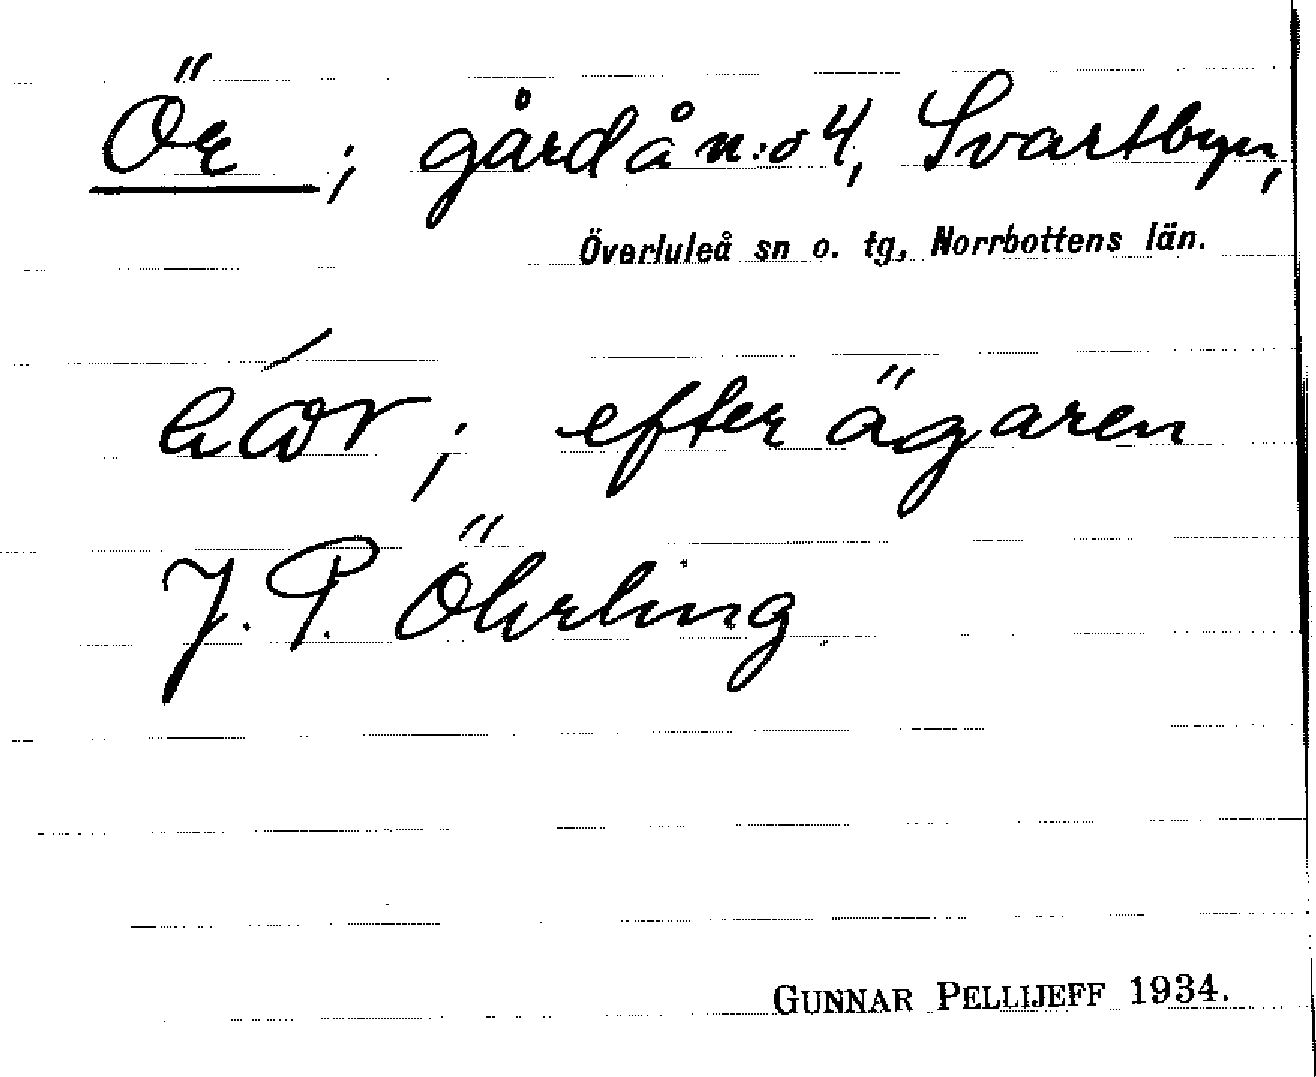 Ör ; gård å n:o 4, Svartbyn,
Överluleå sn o. tg, Norrbottens län.
; efter ägaren
J. P. Öhrling
GUNNAR PELLIJEFF 1934.